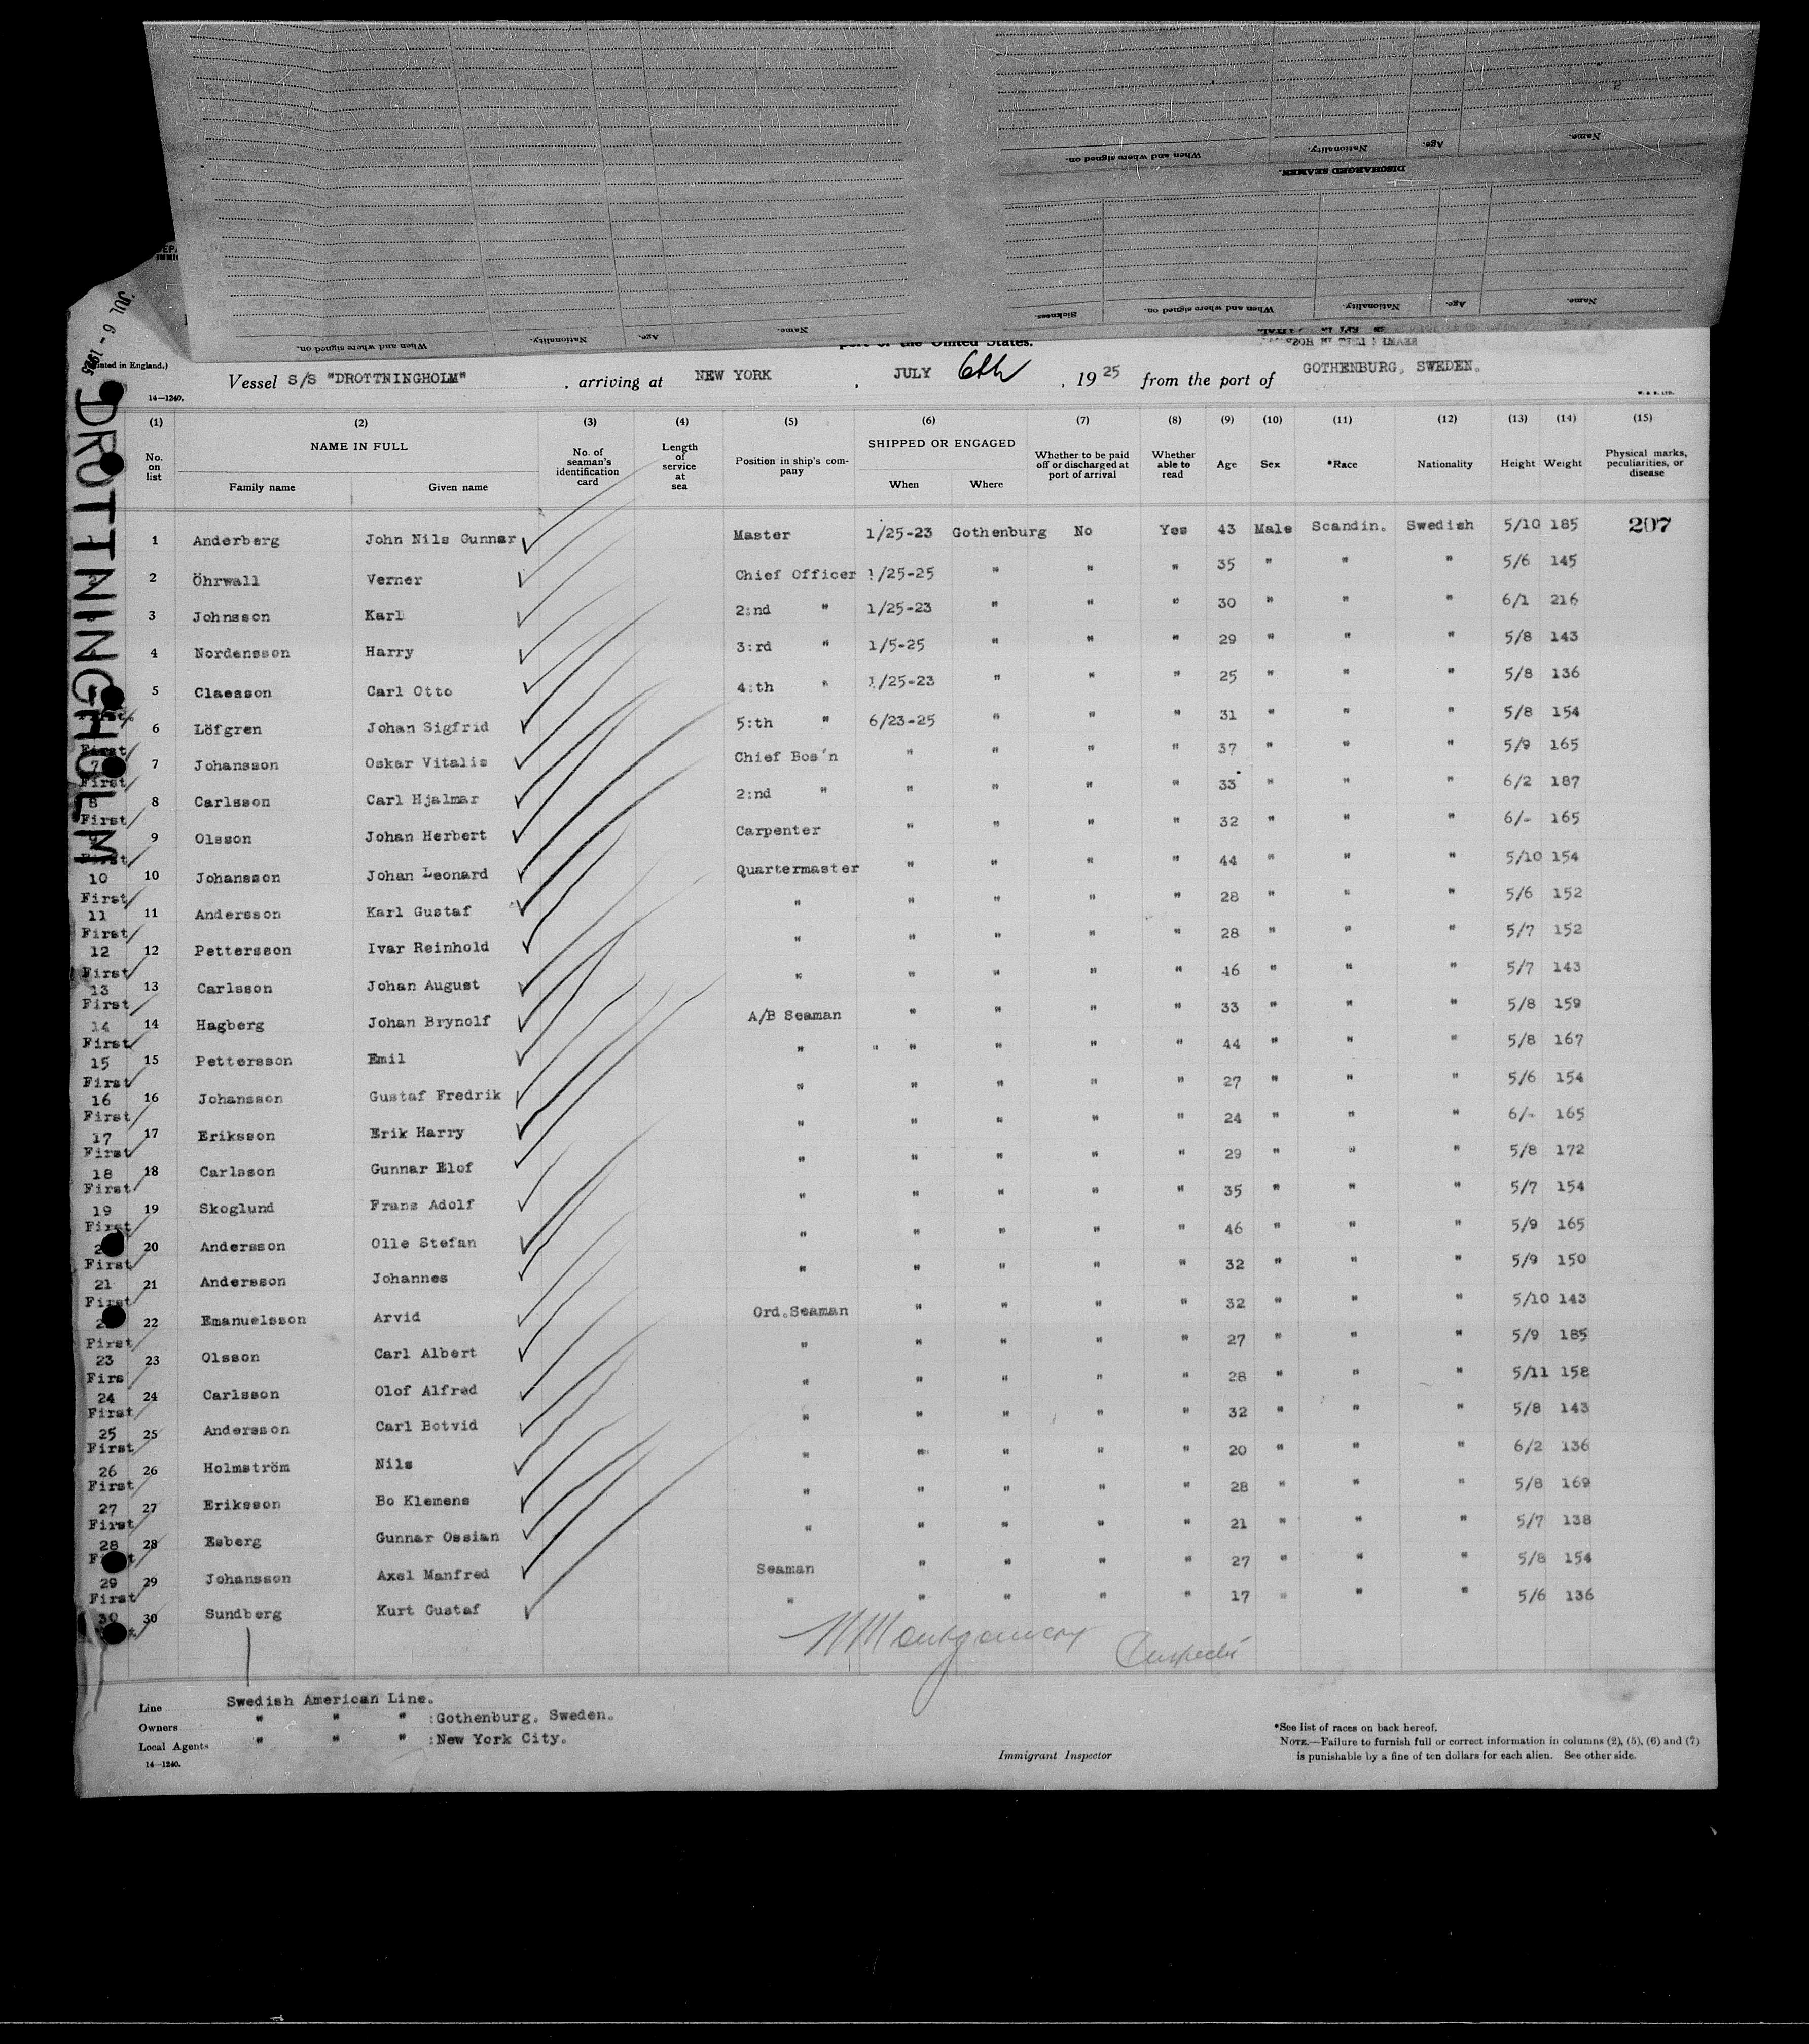 When and where signed on.
Nationality.
Age.
Name.
DISCHARGED SEAMEN.
Sickness.
When and where signed on.
Nationality.
Age.
Name.
When and where signed on.
Nationality.
Age.
Name.
port of the United States.
JUL 6 - 1925
DROTTNINGHOLM
Vessel S/S "DROTTNINGHOLM" , arriving at NEW YORK , JULY 6th , 1925 from the port of GOTHENBURG, SWEDEN.
14—1240.
(1) (2) (3) (4) (5) (6) (7) (8) (9) (10) (11) (12) (13) (14) (15)
No. on list NAME IN FULL Family name Given name No. of seaman's identification card Length of service at sea Position in ship's company SHIPPED OR ENGAGED When Where Whether to be paid off or discharged at port of arrival Whether able to read Age Sex *Race Nationality Height Weight Physical marks, peculiarities, or disease
1 Anderberg John Nils Gunnar Master 1/25-23 Gothenburg No Yes 43 Male Scandin. Swedish 5/10 185 207
2 Öhrwall Verner Chief Officer 1/25-25 " " " 35 " " " 5/6 145
3 Johnsson Karl 2:nd " 1/25-23 " " " 30 " " " 6/1 216
4 Nordensson Harry 3:rd " 1/5-25 " " " 29 " " " 5/8 143
5 Claesson Carl Otto 4:th " 1/25-23 " " " 25 " " " 5/8 136
6 Löfgren Johan Sigfrid 5:th " 6/23-25 " " " 31 " " " 5/8 154
First 7 7 Johansson Oskar Vitalis Chief Bos'n " " " " 37 " " " 5/9 165
First 8 8 Carlsson Carl Hjalmar 2:nd " " " " " 33 " " " 6/2 187
First 9 9 Olsson Johan Herbert Carpenter " " " " 32 " " " 6/- 165
First 10 10 Johansson Johan Leonard Quartermaster " " " " 44 " " " 5/10 154
First 11 11 Andersson Karl Gustaf " " " " " 28 " " " 5/6 152
First 12 12 Pettersson Ivar Reinhold " " " " " 28 " " " 5/7 152
First 13 13 Carlsson Johan August " " " " " 46 " " " 5/7 143
First 14 14 Hagberg Johan Brynolf A/B Seaman " " " " 33 " " " 5/8 159
First 15 15 Pettersson Emil " " " " " " 44 " " " 5/8 167
First 16 16 Johansson Gustaf Fredrik " " " " " 27 " " " 5/6 154
First 17 17 Eriksson Erik Harry " " " " " 24 " " " 6/- 165
First 18 18 Carlsson Gunnar Elof " " " " " 29 " " " 5/8 172
First 19 19 Skoglund Frans Adolf " " " " " 35 " " " 5/7 154
First 20 Andersson Olle Stefan " " " " " 46 " " " 5/9 165
First 21 21 Andersson Johannes " " " " " 32 " " " 5/9 150
First 22 Emanuelsson Arvid Ord.Seaman " " " " 32 " " " 5/10 143
First 23 23 Olsson Carl Albert " " " " " 27 " " " 5/9 185
Firs 24 24 Carlsson Olof Alfred " " " " " 28 " " " 5/11 158
First 25 25 Andersson Carl Botvid " " " " " 32 " " " 5/8 143
First 26 26 Holmström Nils " " " " " 20 " " " 6/2 136
First 27 27 Eriksson Bo Klemens " " " " " 28 " " " 5/8 169
First 28 28 Esberg Gunnar Ossian " " " " " 21 " " " 5/7 138
29 29 Johansson Axel Manfred Seaman " " " " 27 " " " 5/8 154
First 30 30 Sundberg Kurt Gustaf " " " " " 17 " " " 5/6 136
Montgomery
Line Swedish American Line.
Owners " " " :Gothenburg, Sweden.
Local Agents " " " :New York City.
14—1240.
Immigrant Inspector
*See list of races on back hereof.
NOTE.—Failure to furnish full or correct information in columns (2), (5), (6) and (7)
is punishable by a fine of ten dollars for each alien. See other side.